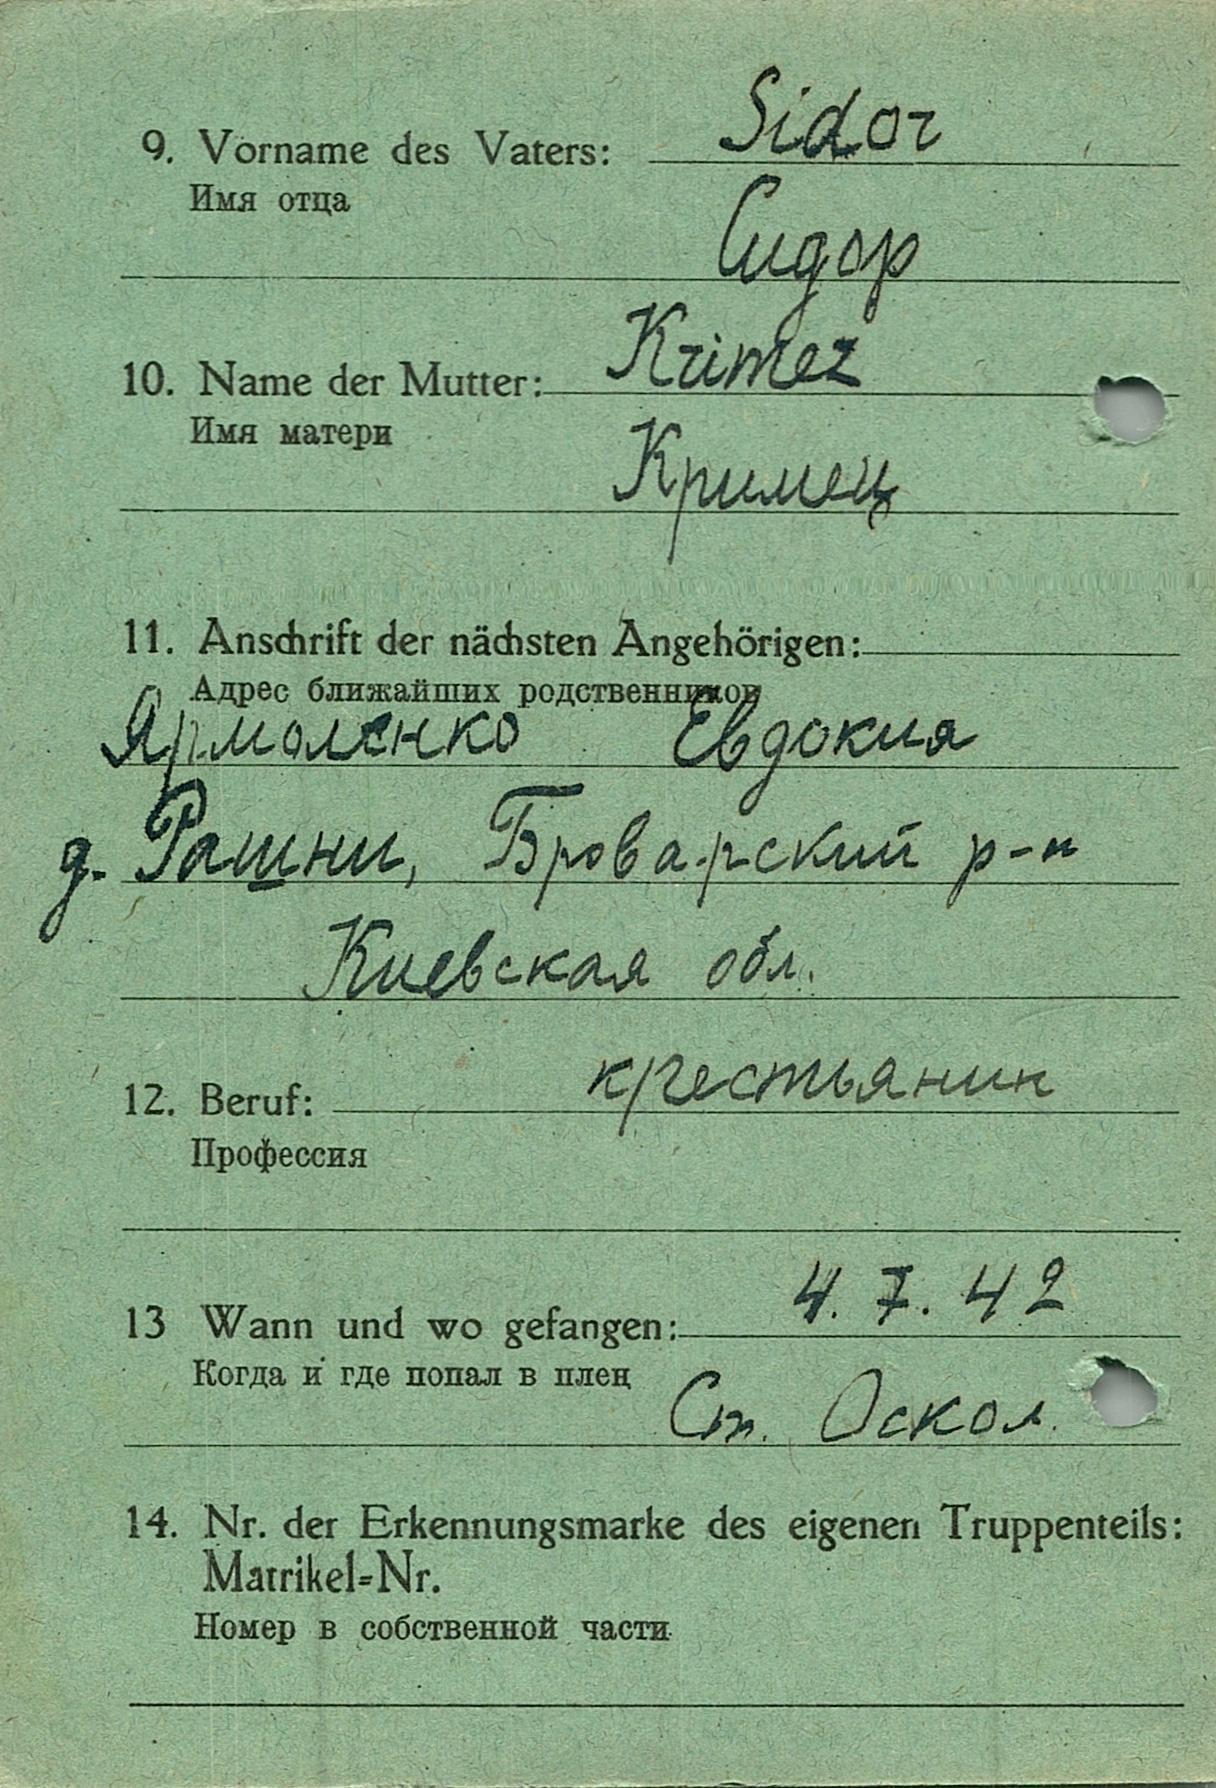 9. Vorname des Vaters: Sidor
Имя отца
Сидор
10. Name der Mutter: Krimez
Имя матери
Кримец
11. Anschrift der nächsten Angehörigen:
Адрес ближайших родственников
Ярмоленко Евдокия
д. Рашни, Броварский р-н
Киевская обл.
12. Beruf: крестьянин
Профессия
13 Wann und wo gefangen: 4. 7. 42
Когда и где попал в плен
Ст. Оскол.
14. Nr. der Erkennungsmarke des eigenen Truppenteils:
Matrikel=Nr.
Номер в собственной части